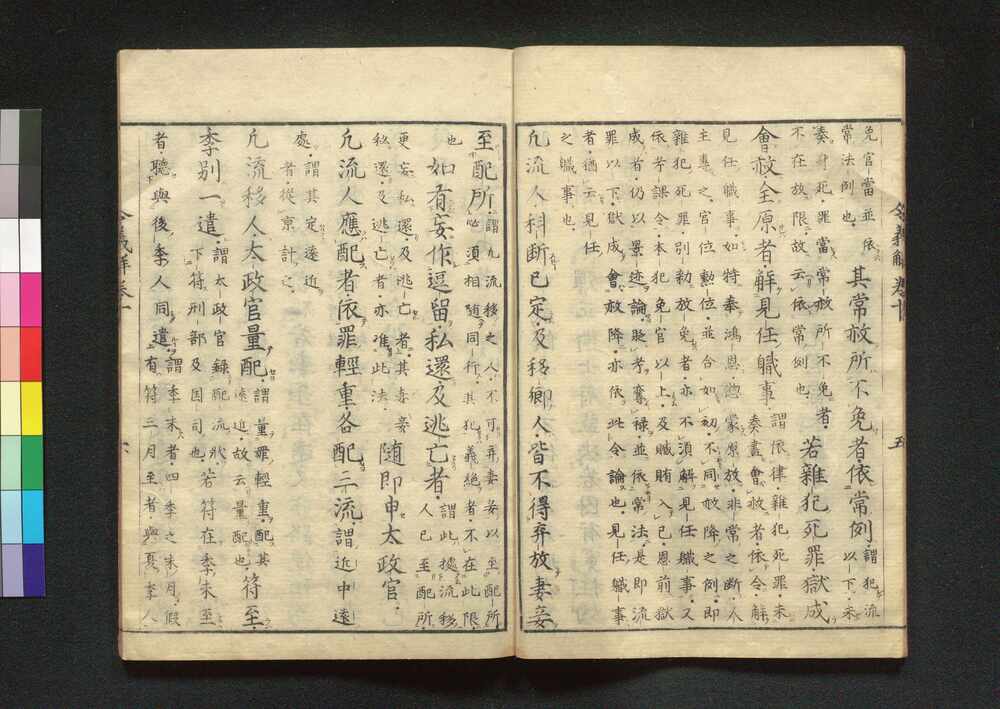 免官當並依
常法例也
其常赦所不免者依常例
謂犯流
以下未
奏身死罪當常赦所不免者
不在放限故云依常例也
若雜犯死罪獄成
會赦全原者解見任職事
謂依律雜犯死罪未
奏畫會赦者依令解
見任職事如特奉鴻恩惣蒙原放非常之斷人
主專之官位勳位並合如初不同赦降之例即
雜犯死罪別勅放免者亦不須解見任職事又
依考課令本犯免官以上及贓賄入己恩前獄
成者仍以景迹論貶考奪祿並依常法是即流
罪以下獄成會赦降亦依此令論也見任職事
者猶云見任
之職事也
凡流人科斷已定及移鄉人皆不得弃放妻妾
至配所
謂凡流移之人不可弃妻妾以至配所
必須相隨同行其犯義絕者不在此限
也
如有妄作逗留私還及逃亡者
謂此據流移
人已至配所
更妄私還及逃亡者其弃妾
私還及逃亡者亦准此法
隨即申太政官
凡流人應配者依罪輕重各配三流謂近中遠
處
謂其定遠近
者從京計之
凡流移人太政官量配
謂量罪輕重配其
遠近故云量配也
符至
季別一遣
謂太政官錄配流狀
下符刑部及国司也
若符在季末至
者聽與後季人同遣
謂季末者四季之末月假
有符三月至者與夏季人